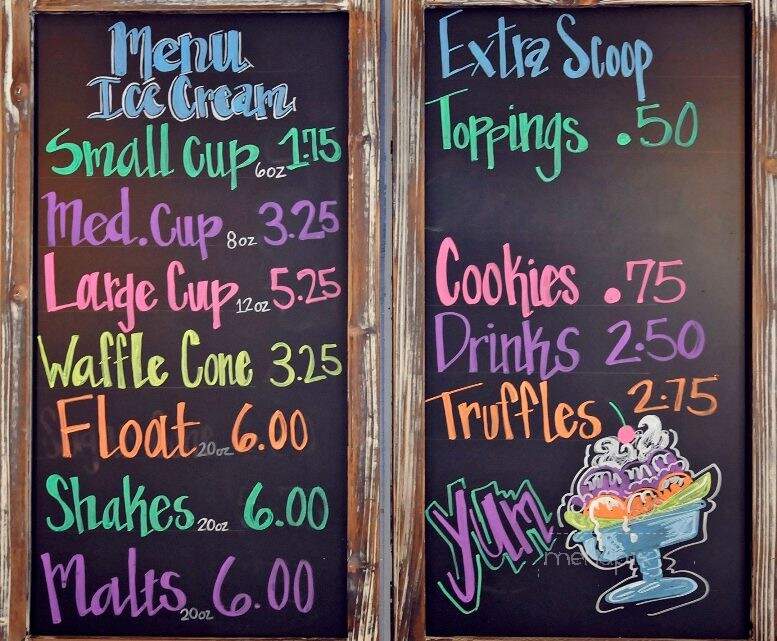 Menu
Ice Cream
Small Cup 6oz 1.75
Med. Cup 8oz 3.25
Large Cup 12oz 5.25
Waffle Cone 3.25
Float 20oz 6.00
Shakes 20oz 6.00
Malts 20oz 6.00
Extra Scoop
Toppings .50
Cookies .75
Drinks 2.50
Truffles 2.75
Yum